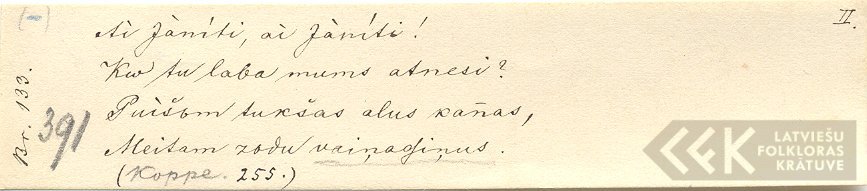 II.
(-)
Ai Jāniti, ai Jāniti!
Kw tu laba mums atnesi?
Puišom tukšas alus kañas,
Meitam zoḑu vaiņagiņus.
(Koppe. 255.)
Br. 133.
391
LATVIEŠU
FOLKLORAS
KRĀTUVE